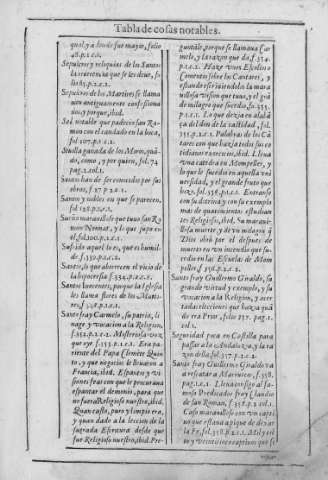 Tabla de cosas notables.
qual, y a donde fue mayor, folio
48.p.1.c.1.
Sepulcros y reliquias de los Santos
la reverencia que se les deue, fo-
lio 65.p.2.c.2.
Sepulcros de los Martires se llama
uan antiguamente confessiona
rios, y porque, ibid.
Sed notable que padecio san Ra-
mon con el candado en la boca,
fol. 107.p.1.c.1.
Seuilla ganada de los Moros, quã-
do, como, y por quien, fol. 74
pag. 2.col. 1.
Santos han de ser conocidos por sus
obras, f. 37 p. 2.c.1.
Santos y nobles en que se parecen,
fol. 198.p.1.c.1.
Sueño marauilloso que tuuo san Ra-
mon Nonnat, y lo que supo en
el, fol. 100.p.1.c.1.
Sufrido aquel es, que es humil-
de, f. 332.p.1.c.2.
Santos, lo que aborrecen el vicio de
la hipocresia. f. 334.p.1.c.1.
Santos Inocentes, porque la Iglesia
les llama flores de los Marti-
res,
Santo fray Carmelo, su patria, li-
nage y vocacion a la Religion,
f. 352.p.2.c.1. Misteriosa voz
que oye, f. 353.p.1.c.1. Era pa-
riente del Papa Clemẽte Quin-
to, y que negocios le lleuaron a
Francia, ibid. Espanto y vi-
siones feas con que le procuraua
espantar el demonio, para que
no fuesse Religioso nuestro, ibid.
Quan casto, puro y limpio era,
y quan dado a la leccion de la
sagrada Escritura desde que
fue Religioso nuestro, ibid. Pre-
guntale, porque se llamaua Car
melo, y la razon que da, f. 354.
p.1.c.1. Haze vnos
Comentos sobre los Cantares, y
estando escriuiendolos la mara
uillosa vision que tuuo, y el grã
de milagro que sucedio, f. 355.
p.1.c.1. Lo que dezia en alabã
ça del don de la castidad, fol.
355.p.2.c.1. Palabras de los Cã
tares con que hazia todos sus co
tidianos exercicios, ibid. Lleua
vna catedra en Mompeller, y
lo que le sucedio en aquella vni
uersidad, y el grande fruto que
hazo, fol. 356.p.1.c.1. Entran
con su dotrina y con su exemplo
mas de quarenta estudian-
tes Religiosos, ibid. Su maraui-
llosa muerte, y de vn milagro q̃
Dios obrò por el despues de
muerto en vn incendio que suce
dio en las Escuelas de Mom-
peller, f. 356.p.2.c.2.
Santo fray Guillermo Giraldo, su
grande virtud y exemplo, y su
vocacion a la Religion, y acer
tadas elecciones que hazia quã
do era Prior, folio 357. pag. 1.
col. 1.
Seguridad poca en Castilla para
passar a la Andaluzia, y la ra
zon della, fol. 357.p.1.c.2.
Santo fray Guillermo Giraldo va
a rescatar a Marruecos, f. 358.
pag. 1.c.1. Lleua consigo al fa-
moso Predicador fray Claudio
de san Roman, f. 358.p.1.col.
Caso marauilloso con vn capti-
uo que estaua a pique de dexar
la Fè, f. 358.p.2.c.1.
y veinticinco captiuos que se